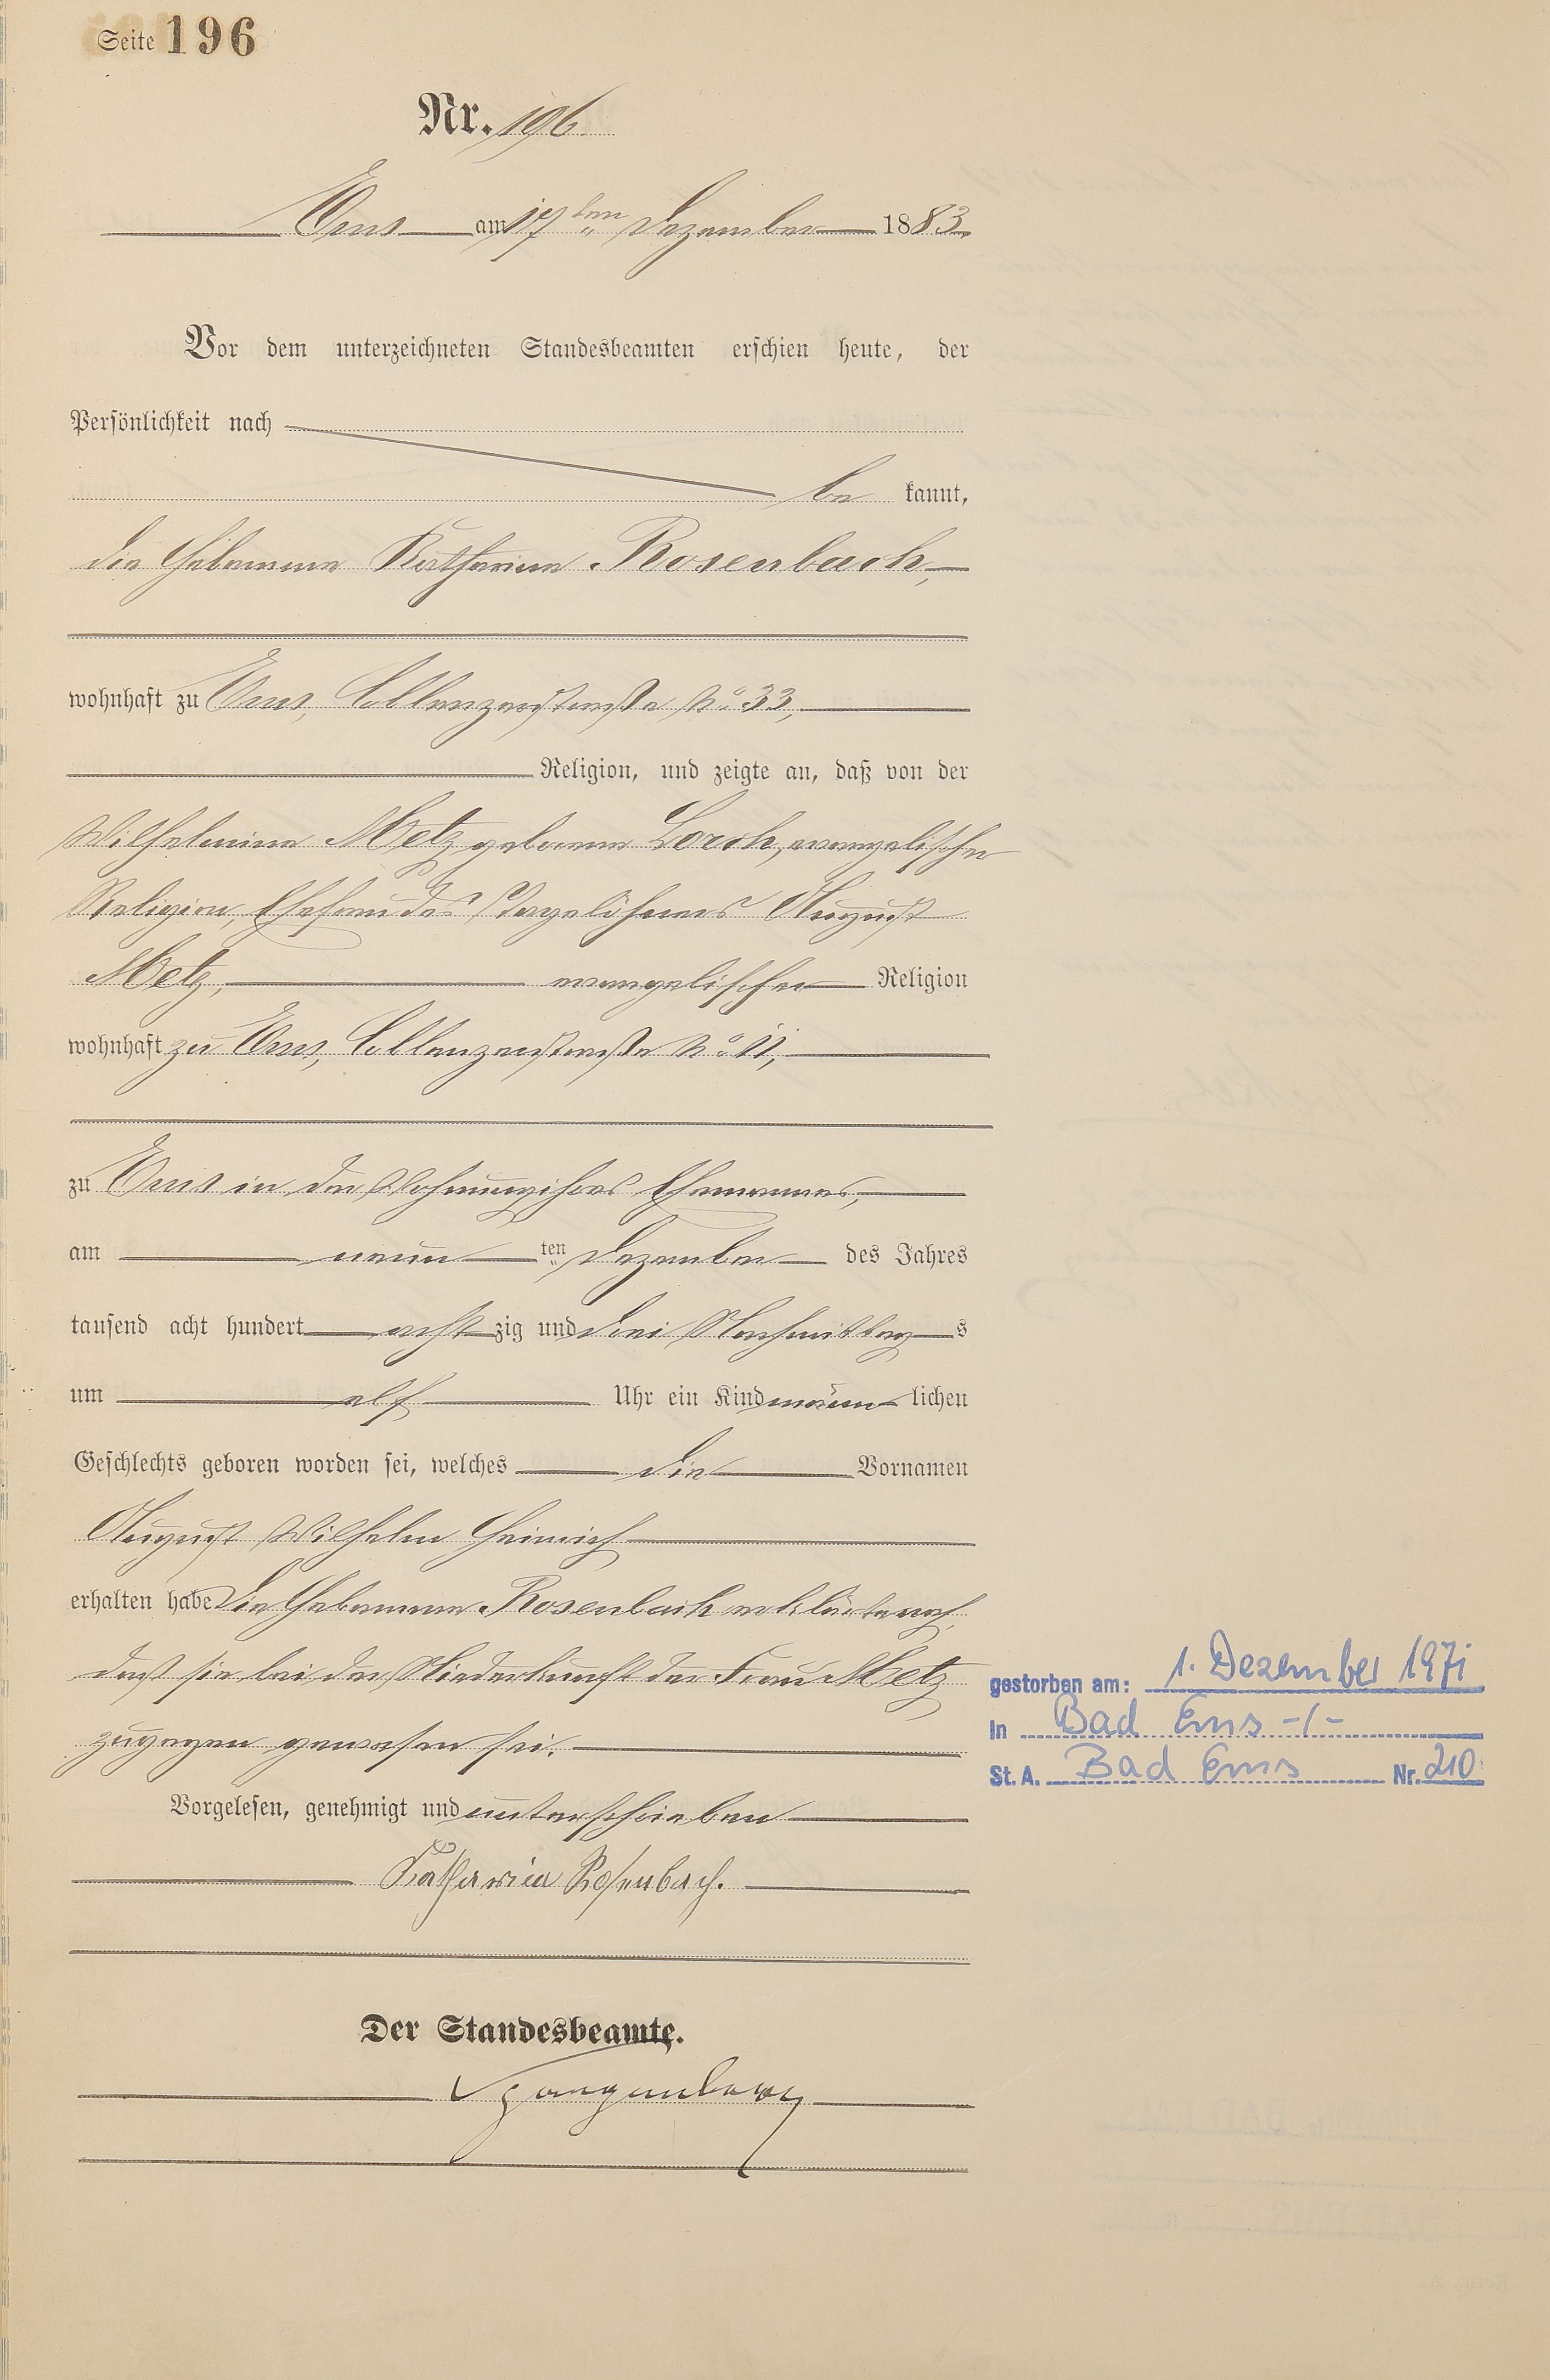 Seite 196
Nr. 196
Ems am 17ten Dezember 1883.
Vor dem unterzeichneten Standesbeamten erschien heute, der
Persönlichkeit nach
be kannt,
die Hebamme Katharina Rosenbach,
wohnhaft zu Ems, Coblenzerstraße No 33,
Religion, und zeigte an, daß von der
Wilhelmine Metz geborene Lorch, evangelischer
Religion, Ehefrau des Tagelöhners August
Metz, evangelischer Religion
wohnhaft zu Ems, Coblenzerstraße No 11,
zu Ems in der Wohnung ihres Ehemannes,
am neun ten Dezember des Jahres
tausend acht hundert acht zig und drei Nachmittag s
um elf Uhr ein Kind männ lichen
Geschlechts geboren worden sei, welches die Vornamen
August Wilhelm Heinrich
erhalten habe Die Hebamme Rosenbach erklärte noch,
daß sie bei der Niederkunft der Frau Metz
zugegen gewesen sei.
Vorgelesen, genehmigt und unterschrieben
Katharina Rosenbach.
Der Standesbeamte.
Spangenberg
gestorben am: 1. Dezember 1971
in Bad Ems -/-
St. A. Bad Ems Nr. 210